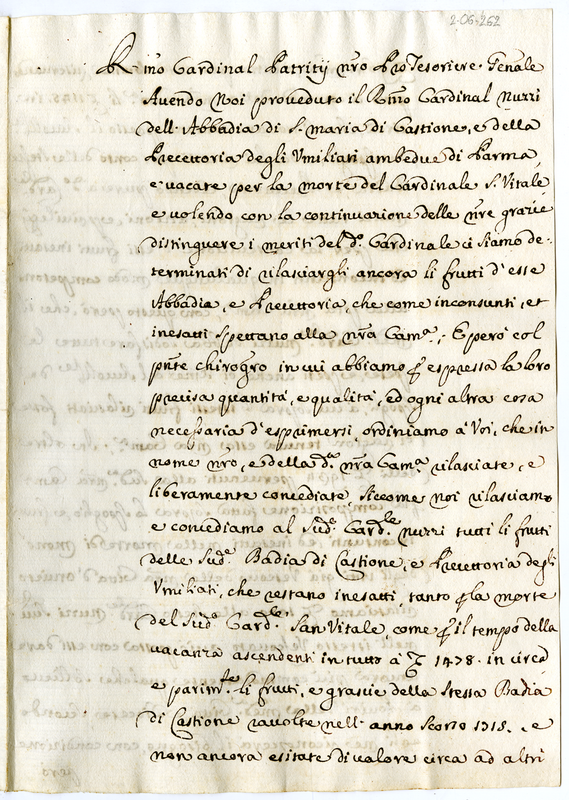 2-06-252
R.mo Cardinal Patritij nro Pro Tesoriere Genale
Avendo Noi proveduto il Rmo Cardinal Nuzzi
dell'Abbadia di S. Maria di Castione, e della
Precettoria degli Vmiliati ambedue di Parma,
e vacate per la morte del Cardinale S. Vitale
e volendo con la continuazione delle nre grazie
distinguere i meriti del d.º Cardinale ci siamo de-
terminati di rilasciargli ancora li frutti d'esse
Abbadia, e Precettoria, che come inconsunti, et
inesatti spettano alla nra Cam.ª; E però col
pnte chirogro in cui abbiamo p espressa la loro
precisa quantità, e qualità, ed ogni altra cosa
necessaria d'esprimersi, ordiniamo à Voi, che in
nome nro, e della d.ª nra Cam.ª rilasciate, e
liberamente concediate siccome noi rilasciamo
e concediamo al sud.º Card.le Nuzzi tutti li frutti
delle sud.e Badia di Castione, e Precettoria degli
Vmiliati, che restano inesatti, tanto p la morte
del sud.º Card.le San Vitale, come p il tempo della
vacanza ascendenti in tutto à 1478. in circa
e parim.te li frutti, e grascie della stessa Badia
di Castione racolte nell'anno scorso 1715. e
non ancora esitate di valore circa ad altri